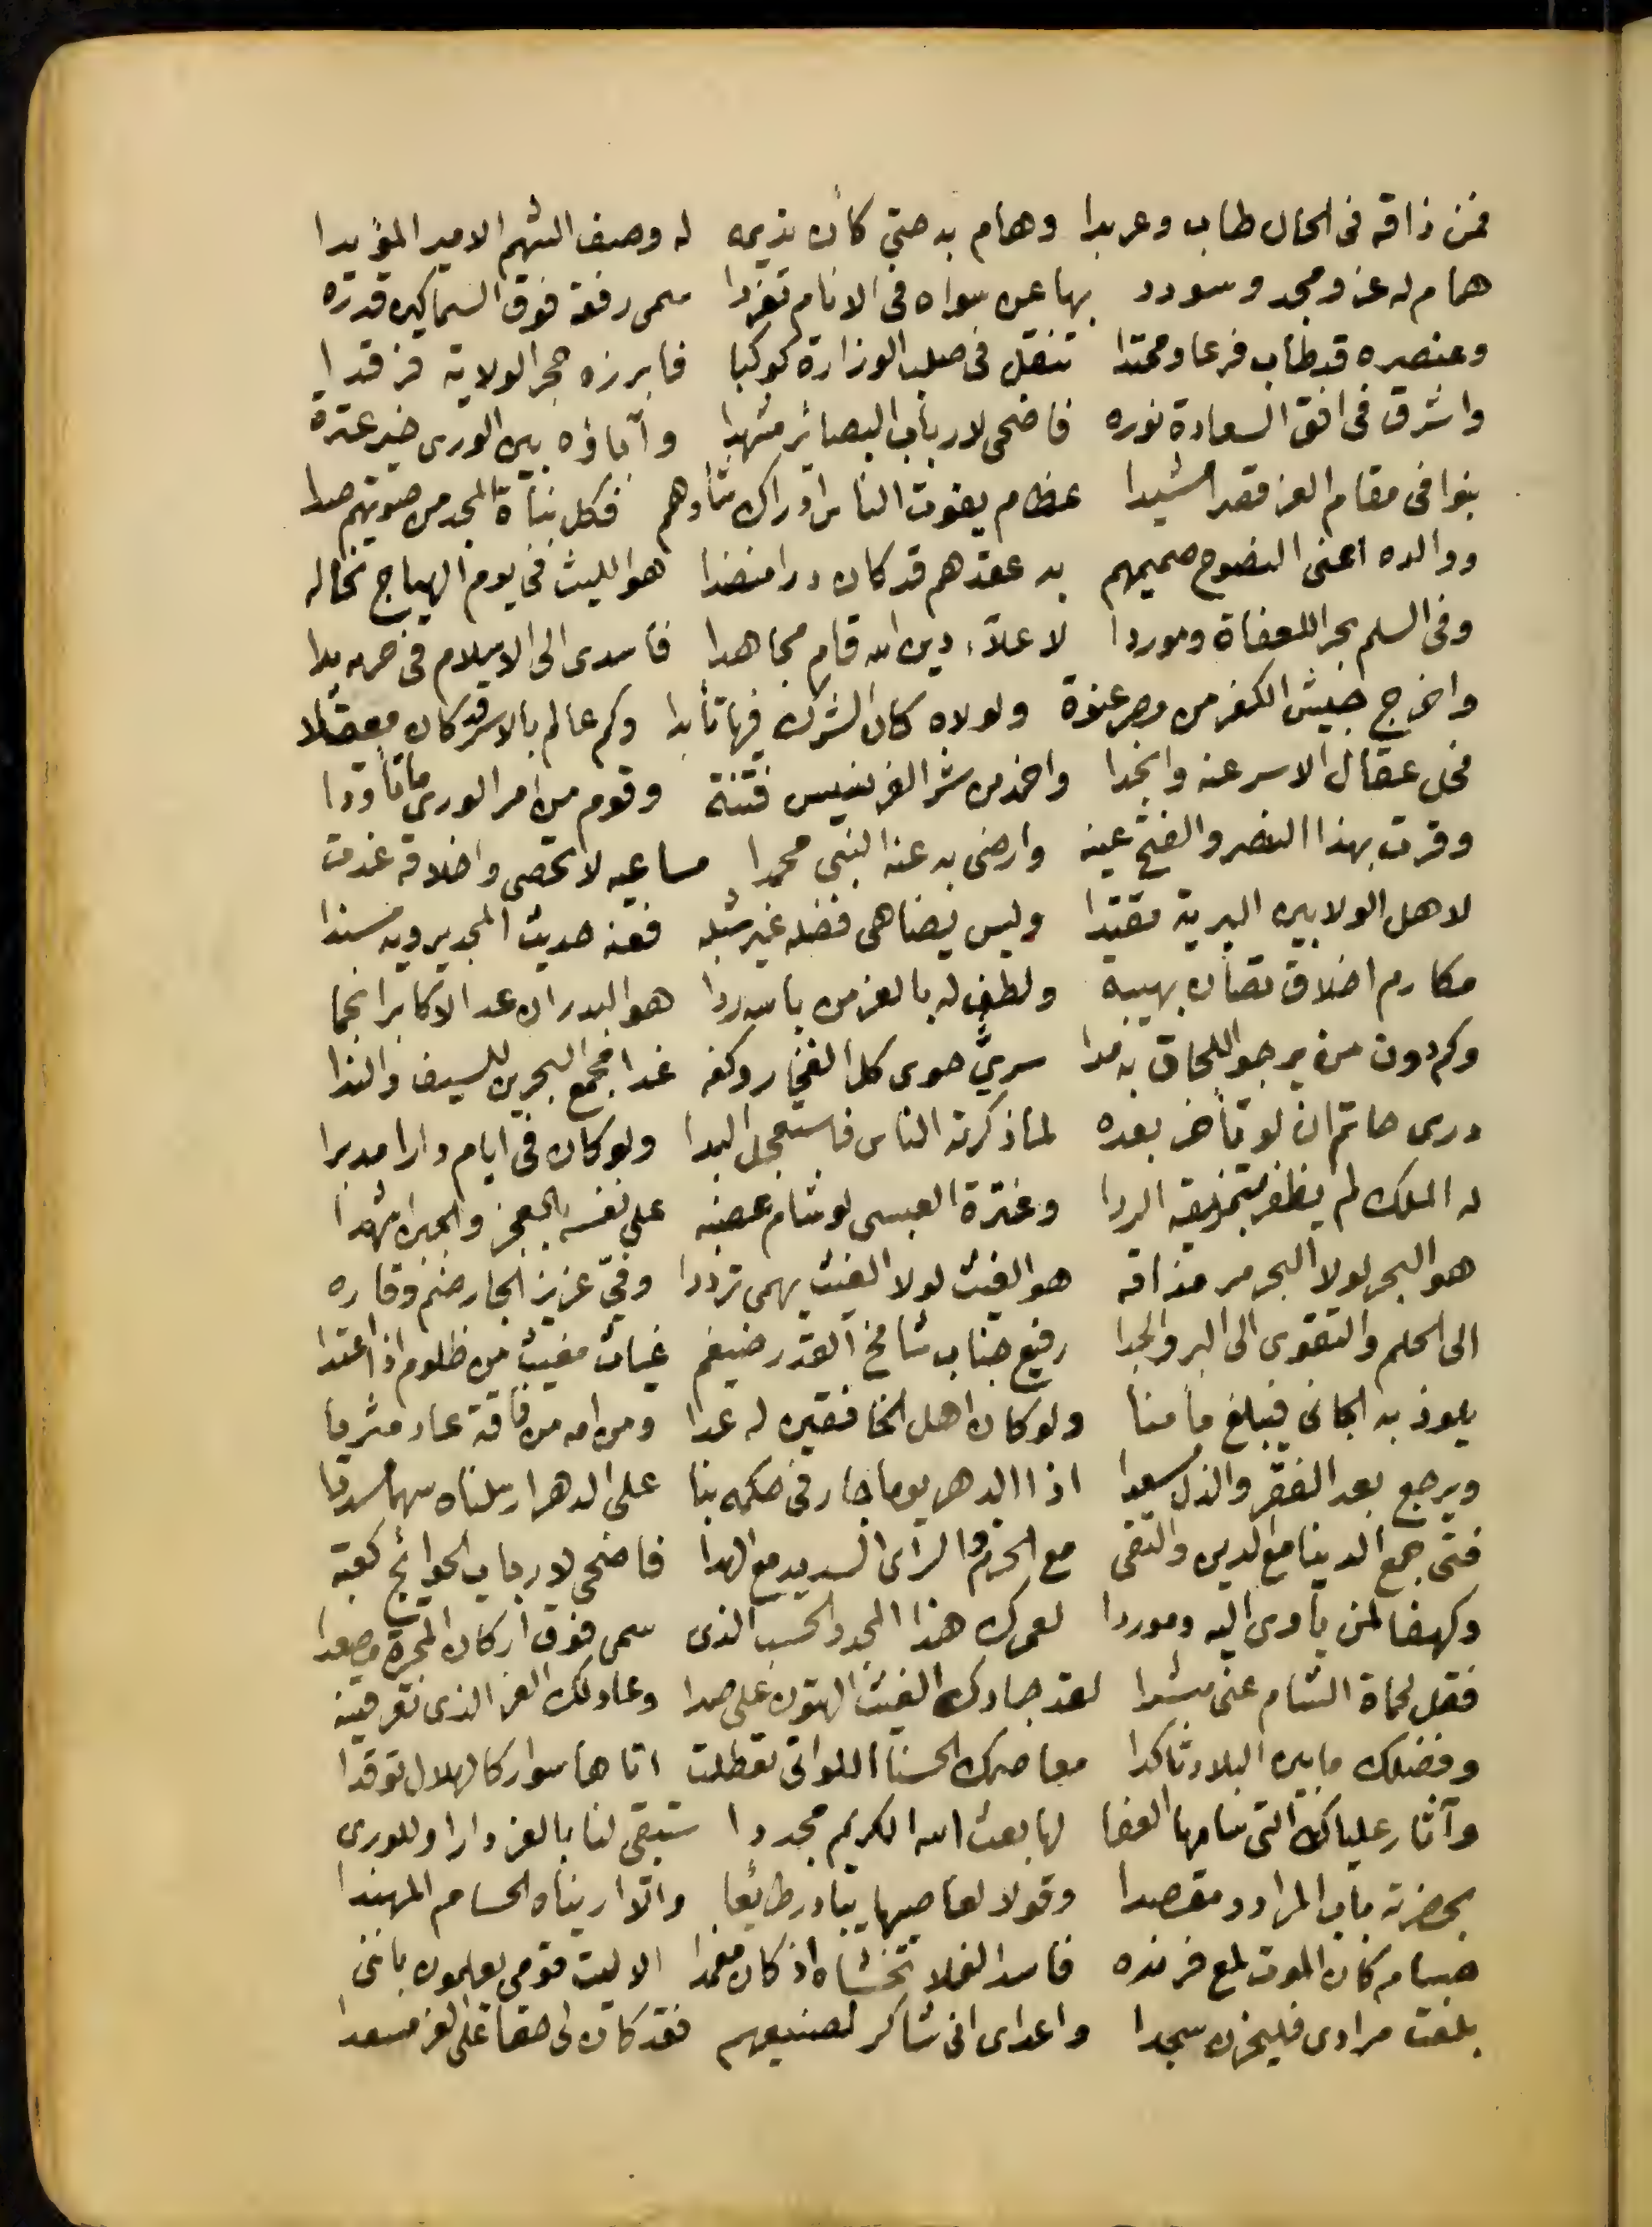 فمن ذاقه فى الحال طاب وعربدا وهام به حتي كأن نديمه له وصف الشهم الامير المؤيدا
همام له عز ومجد وسودد بها عن سواه فى الانام تفردا سمى رفعة فوق السماكين قدره
وعنصره قد طاب فرعا ومحتدا تنقل فى صلب الوزارة كوكبا فابرزه حجر الولاية فرقدا
واشرق فى افق السعادة نوره فاضحى لارباب البصائر مشهدا وآباؤه بين الورى خير عترة
بنوا فى مقام العز قصرا مشيدا عظام يفوت الناس ادراك شأوهم فكل بناة المجد من صوتهم صدا
ووالده اعنى النصوح صميمهم به عقدهم قد كان درا منضدا هو الليث فى يوم الهياج تخاله
وفى السلم بحرا للعفاة وموردا لاعلاء دين الله قام مجاهدا فاسدى الى الاسلام فى حربه يدا
واخرج جيش الكفر من مصر عنوة ولولاه كان الشرك فيها تأبدا وكم عالم بالاسر قد كان معقلا
فحل عقال الاسر عنه وانجدا واخمد من شر الفرنسيس فتنة وقوم من امر الورى ما تأودا
وقرت بهذا النصر والفتح عينه وارضى به عنه النبي محمدا مساعيه لا تحصى واخلاقه غدت
لاهل الولا بين البرية مقتدا وليس يضاهى فضله غير شبله فعنه حديث المجد يرويه مسندا
مكارم اخلاق تصان بهيبة ولطف له بالعز من باسه ردا هو البدر ان عد الاكابر انجما
وكم دون من يرجو اللحاق به مدا سريّ حوى كل الفخار وكفه غدا مجمع البحرين للسيف والندا
درى حاتم ان لو تأخر بعده لما ذكرته الناس فاستعجل البدا ولو كان فى ايام دارا مدبرا
له الملك لم يظفر بتمزيقه الردا وعنترة العبسى لو شام عضبه على نفسه بالعجز والجبن شهدا
هو البحر لولا البحر مر مذاقه هو الغيث لولا الغيث يهمى ترددا وفيّ عزيز الجار ضخم وقاره
الى الحلم والتقوى الى البر والجدا رفيع جناب شامخ القدر ضيغم غياث مغيث من ظلوم اذا اعتدا
يلوذ به الجانى فيبلغ مأمنا ولو كان اهل الخافقين له عدا ومن امه من فاقة عاد مثريا
ويرجع بعد الفقر والذل مسعدا اذا الدهر يوما جار فى حكمه بنا على الدهر ارسلناه سهما مسددا
فتى جمع الدنيا مع الدين والتقى مع الحزم والرأى السديد مع الهدا فاضحى لارباب الحوائج كعبة
وكهفا لمن يأوى اليه وموردا لعمرك هذا المجد والحسب الذى سمى فوق اركان المجرة مصعدا
فقل لحماة الشام عنى مبشرا لقد جادك الغيث الهتون على صدا وعاد لك العز الذى تعرفينه
وفضلك ما بين البلاد تأكدا معاصمك الحسنا اللواتى تعطلت اتاها سوار كالهلال توقدا
وآثار علياك التى سامها العفا لها بعث الله الكريم مجددا ستبقى لنا بالعز دارا وللورى
بحضرته باب المراد ومقصدا وقولا لعاصيها يبادر طائعا والا اريناه الحسام المهندا
حسام كان الموت لمع فرنده فاسد الفلا تخشاه اذ كان مغمدا الا ليت قومى يعلمون باننى
بلغت مرادى فليخرن سجدا واعداى انى شاكر لصنيعهم فقد كان لى حقا على العز مسعدا